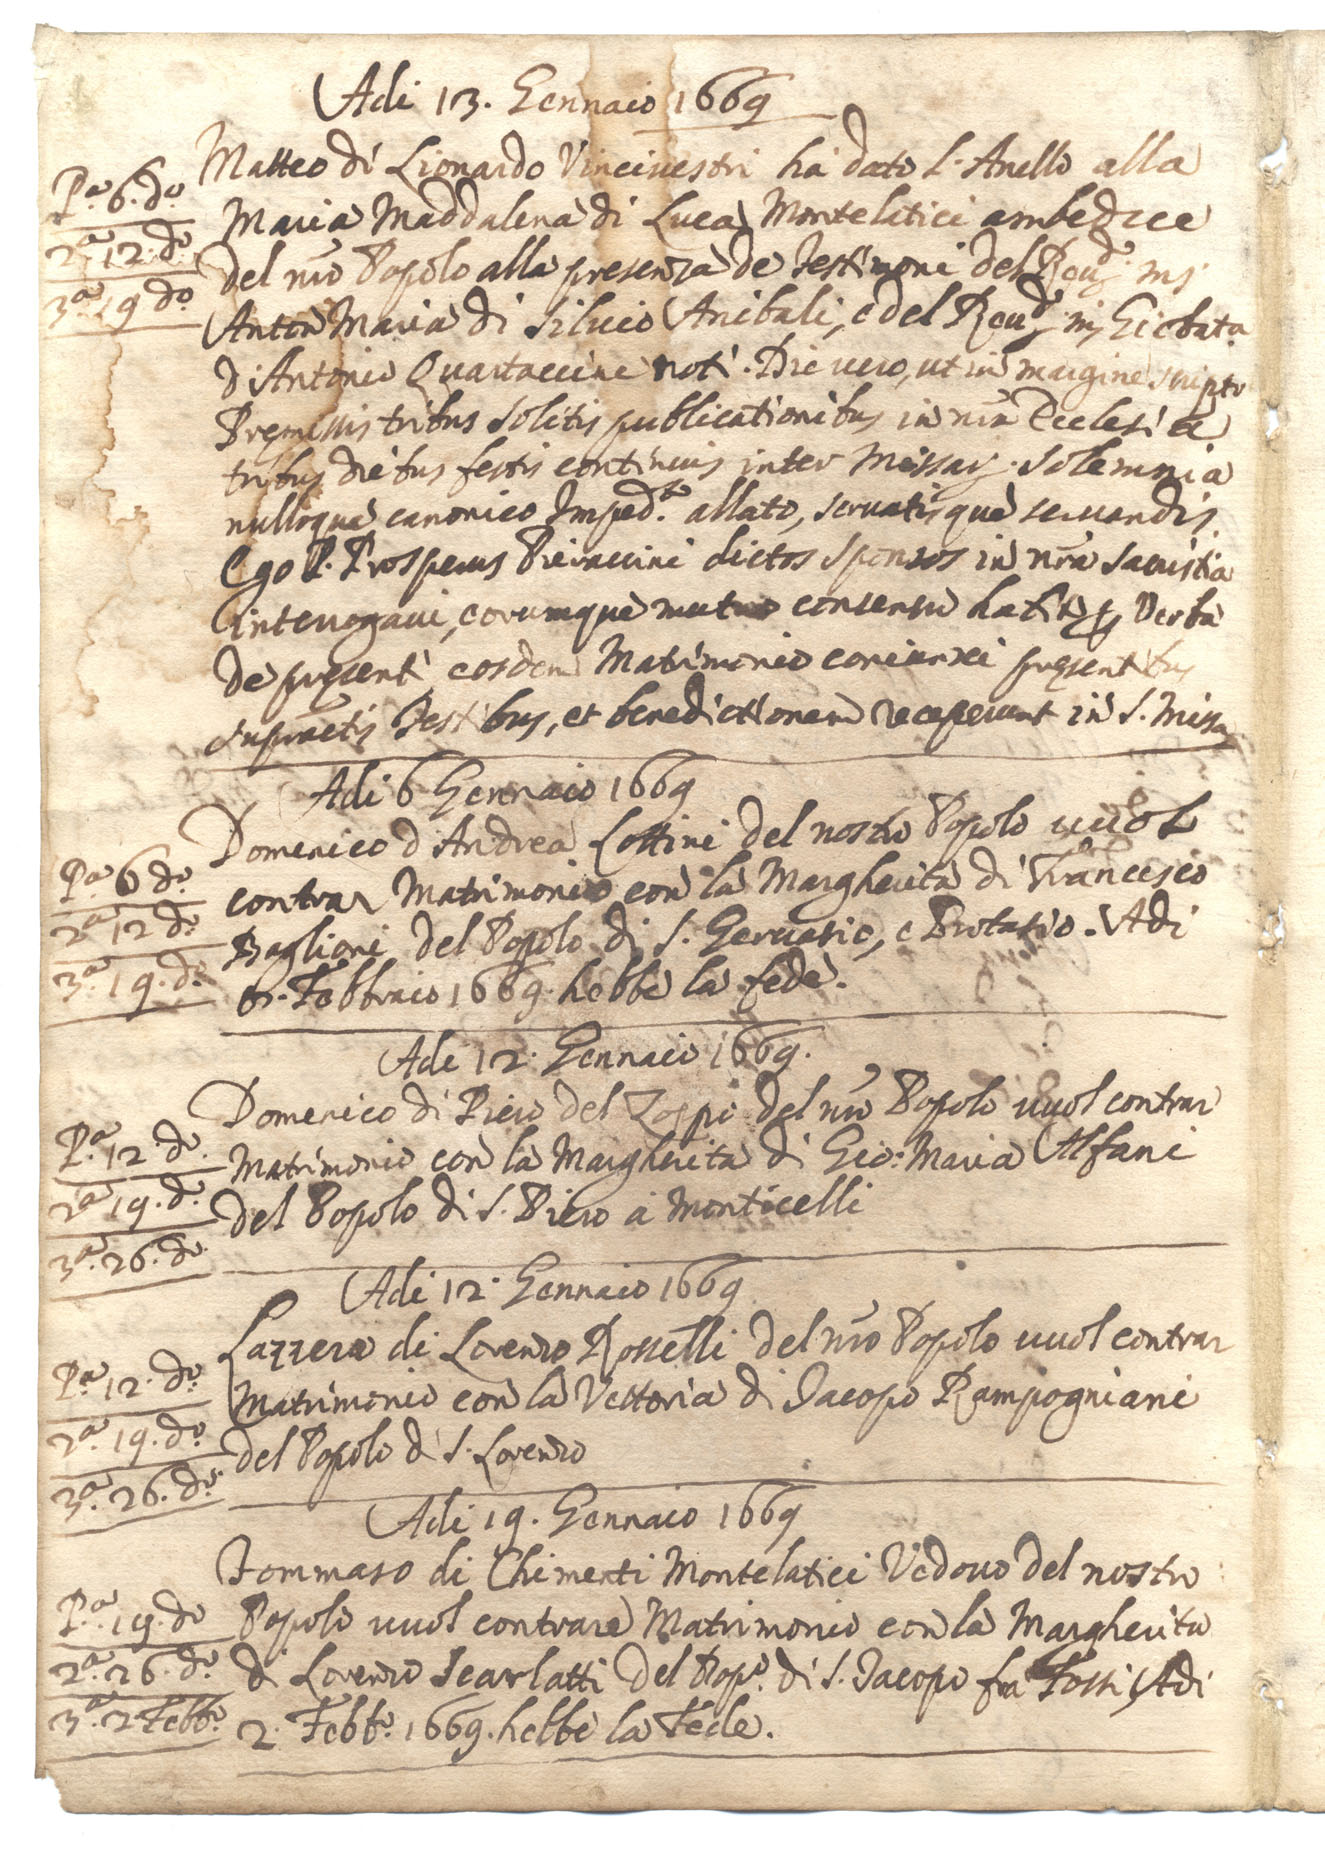 Adi 13. Gennaio 1669
Matteo di Lionardo Vincinestri ha dato l'Anello alla
Pa. 6. do
Maria Maddalena di Luca Montelatici ambedue
2a. 12. do
del nro Popolo alla presenza de Testimoni del Reud.
3a. 19 do
Anton Maria di Silvio Anibali, e del Reud. Giobata
d'Antonio Quartaccini noti. Die vero, ut in margine scripto
Premissis tribus solitis publicationibus in nra Ecclesia
tribus diebus festis continuis inter Missar. solemnia
nulloque canonico Imped.to allato, servatisque servandis
Ego P. Prosperus Pieraccini dictos sponsos in nra Sacristia
interrogavi, eorumque mutuo consensu habito p Verba
de presenti eosdem Matrimonio coniunxi presentibus
supractis Testibus, et benedictionem receperunt in S. Missa
Adi 6 Gennaio 1669
Domenico d'Andrea Lottini del nostro Popolo vuol
Pa. 6 do.
contrar Matrimonio con la Margherita di Francesco
2a. 12 do.
Baglioni del Popolo di S. Gervasio, e Protasio. Adi
3a. 19. do.
Febbraio 1669. hebbe la fede.
Adi 12. Gennaio 1669.
Domenico di Piero del Zoppo del nro Popolo vuol contrar
Pa. 12. do.
Matrimonio con la Margherita di Gio: Maria Alfani
2a. 19. do.
del Popolo di S. Piero a Monticelli
3a. 26. do.
Adi 12. Gennaio 1669
Lazzero di Lorenzo Rosselli del nro Popolo vuol contrar
Pa. 12. do.
Matrimonio con la Vettoria di Jacopo Rampogniani
2a. 19. do.
del Popolo di S. Lorenzo
3a. 26. do.
Adi 19. Gennaio 1669
Tommaso di Chimenti Montelatici Vedovo del nostro
Pa. 19. do
Popolo vuol contrare Matrimonio con la Margherita
2a. 26. do.
di Lorenzo Scarlatti del Popo. di S. Jacopo fra Fossi, Adi
3a. 2 Febb.o
2. Febb.o 1669. hebbe la Fede.